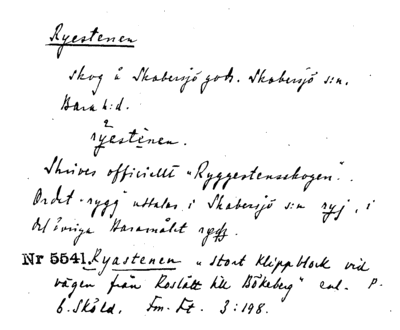 Ryestenen
skog å Skabersjö gods. Skabersjö s:n.
Bara h:d.
ryestenen.
Skrives officiellt "Ryggestensskogen".
Ordet rygg uttalas i Skabersjö s:n ryj, i
det övriga Baramålet
Nr 5541. Ryastenen "stort klippblock vid
vägen från Roslätt till Bökeberg" enl. P.
G. Sköld. Fm. Ft. 3:198.